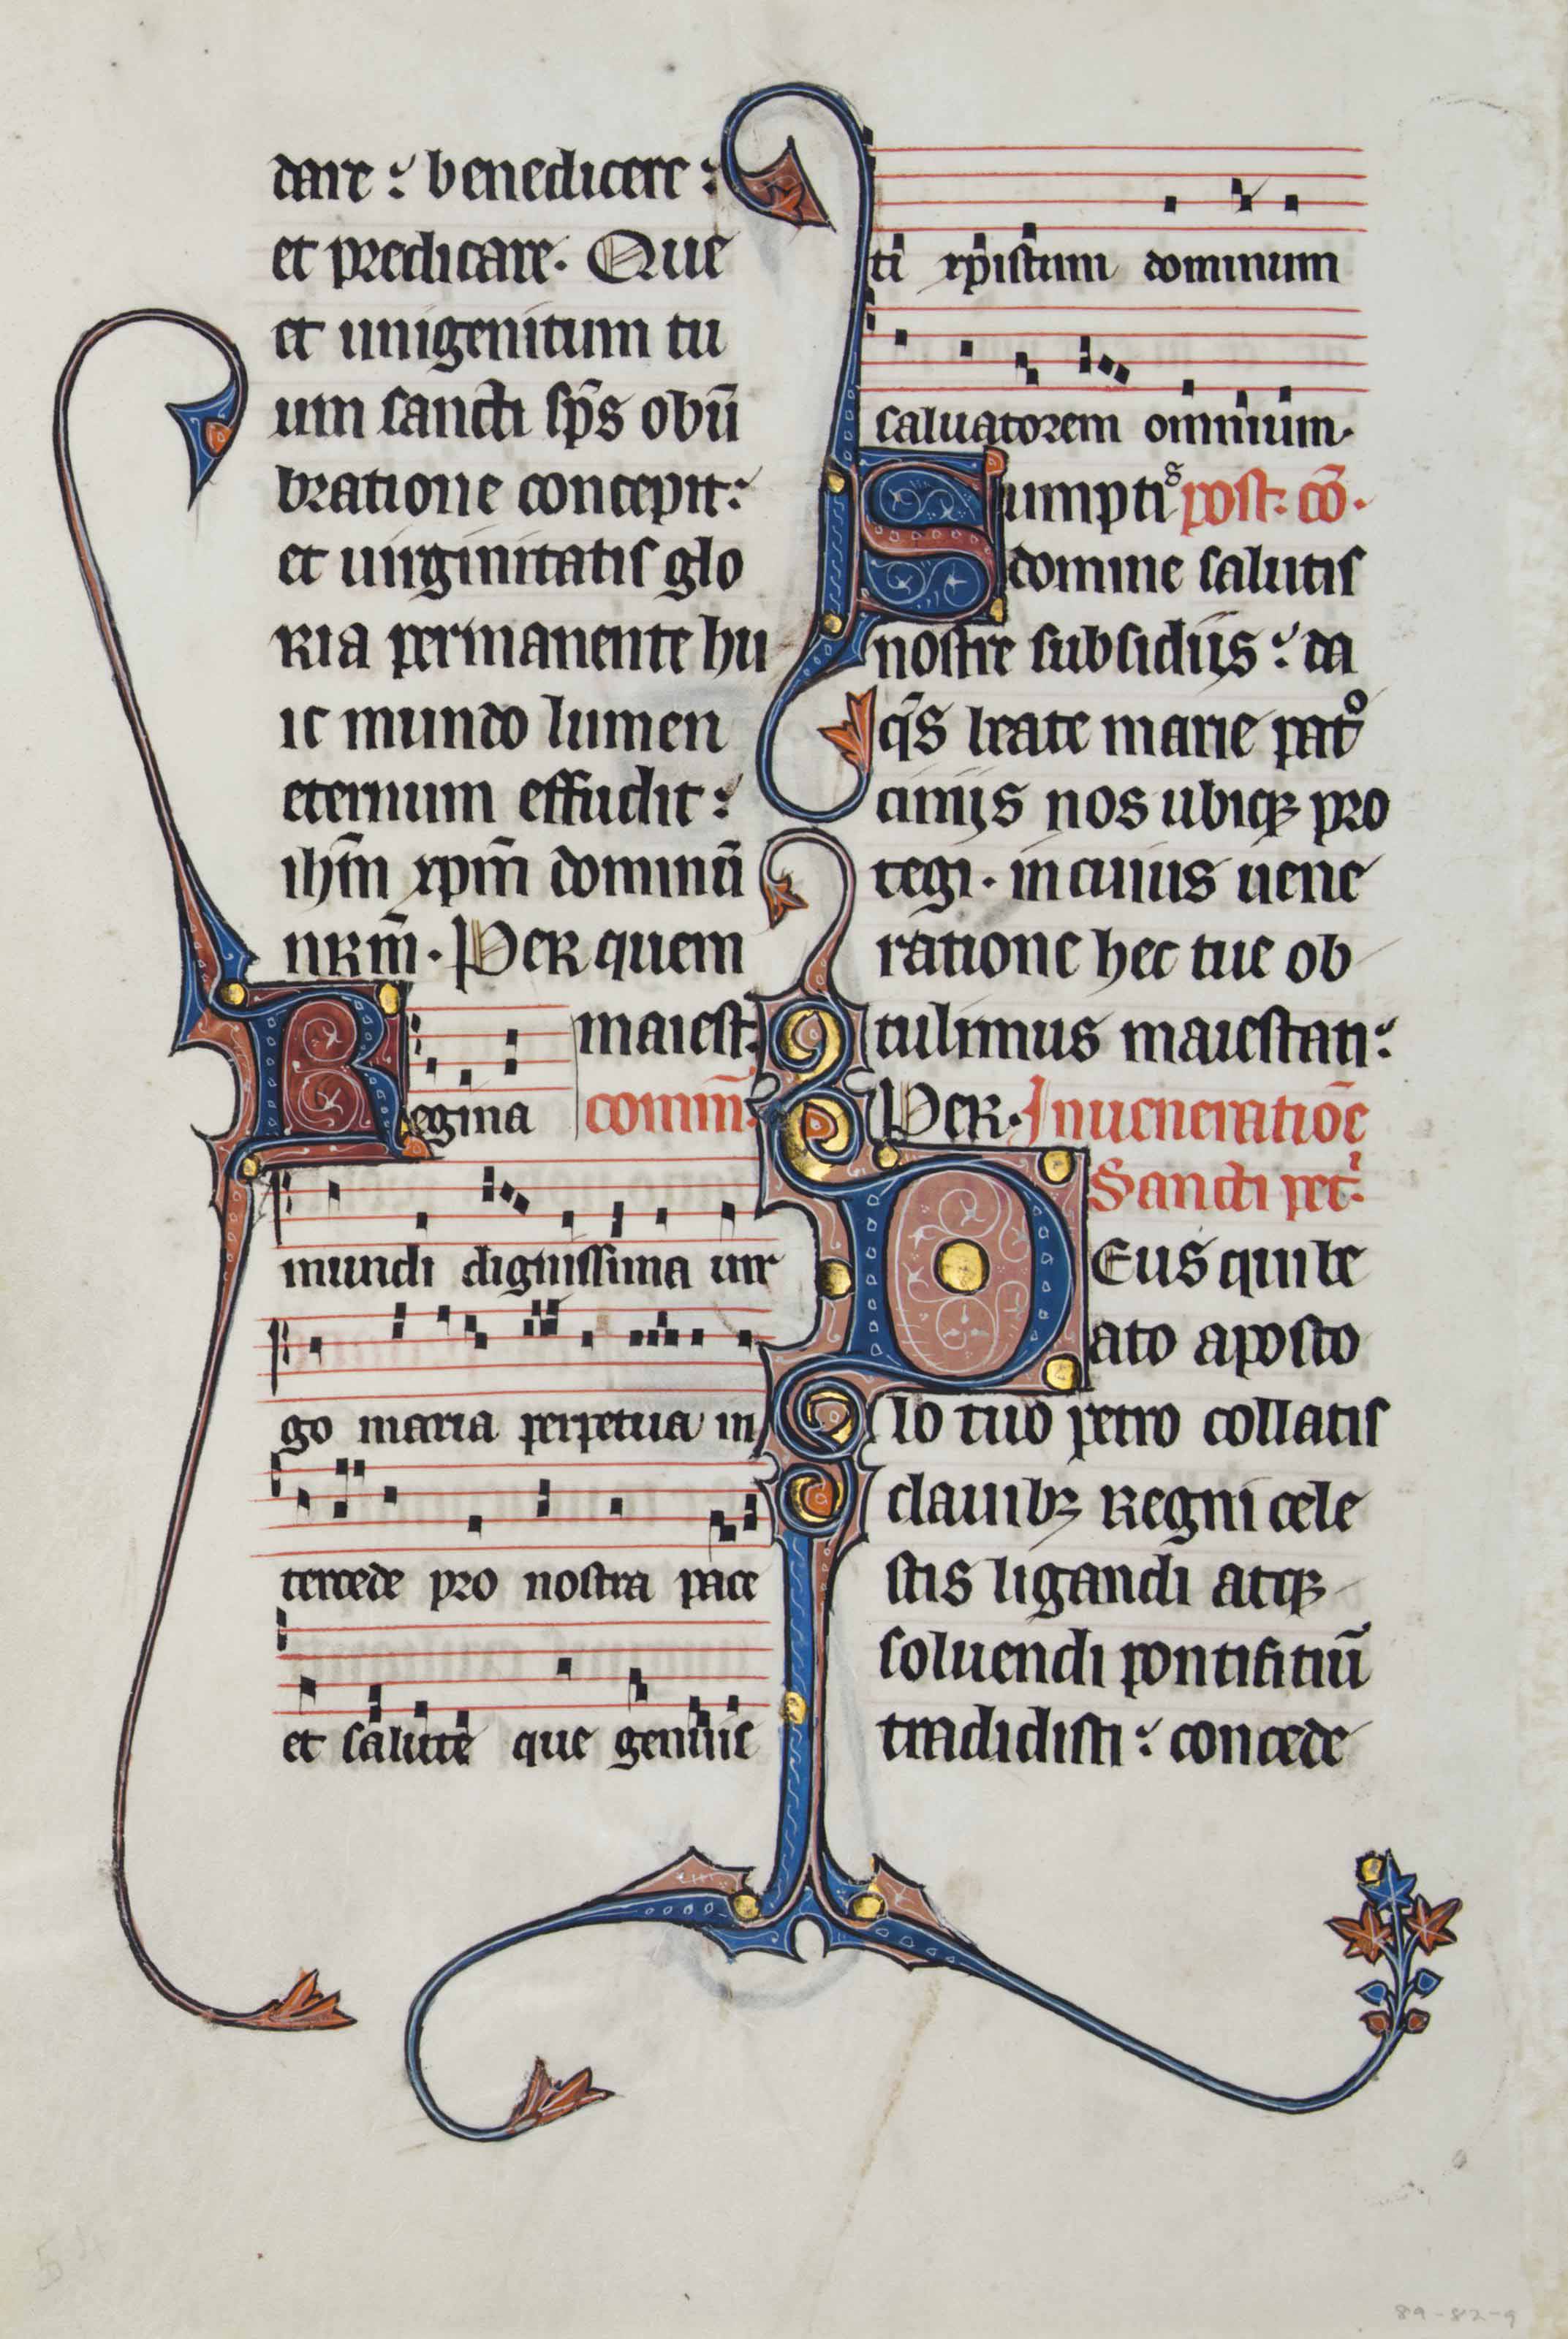 dare : benedicere :
et predicare. Que
et unigenitum tu
um sancti sp̄s obū
bratione concepit :
et uirginitatis glo
ria permanente hu
ic mundo lumen
eternum effudit :
ihm̄ xpm̄ dominū
nrm̄. Per quem
maiest.
Regina com̄m.
mundi dignissima uir
go maria perpetua in
tercede pro nostra pace
et salute que genuis
ti xp̄istum dominum
saluatorem omnium.
Sumptis post. cō.
domine salutis
nostre subsidiis : da
qs̄ beate marie patº
ciniis nos ubiqȝ pro
tegi. in cuius uene
ratione hec tue ob
tulimus maiestati :
Per. In ueneratiōe
Sancti pet.
Deus qui be
ato aposto
lo tuo petro collatis
clauibȝ regni cele
stis ligandi atqȝ
soluendi pontifitiū
tradidisti : concede
54
89-82-9